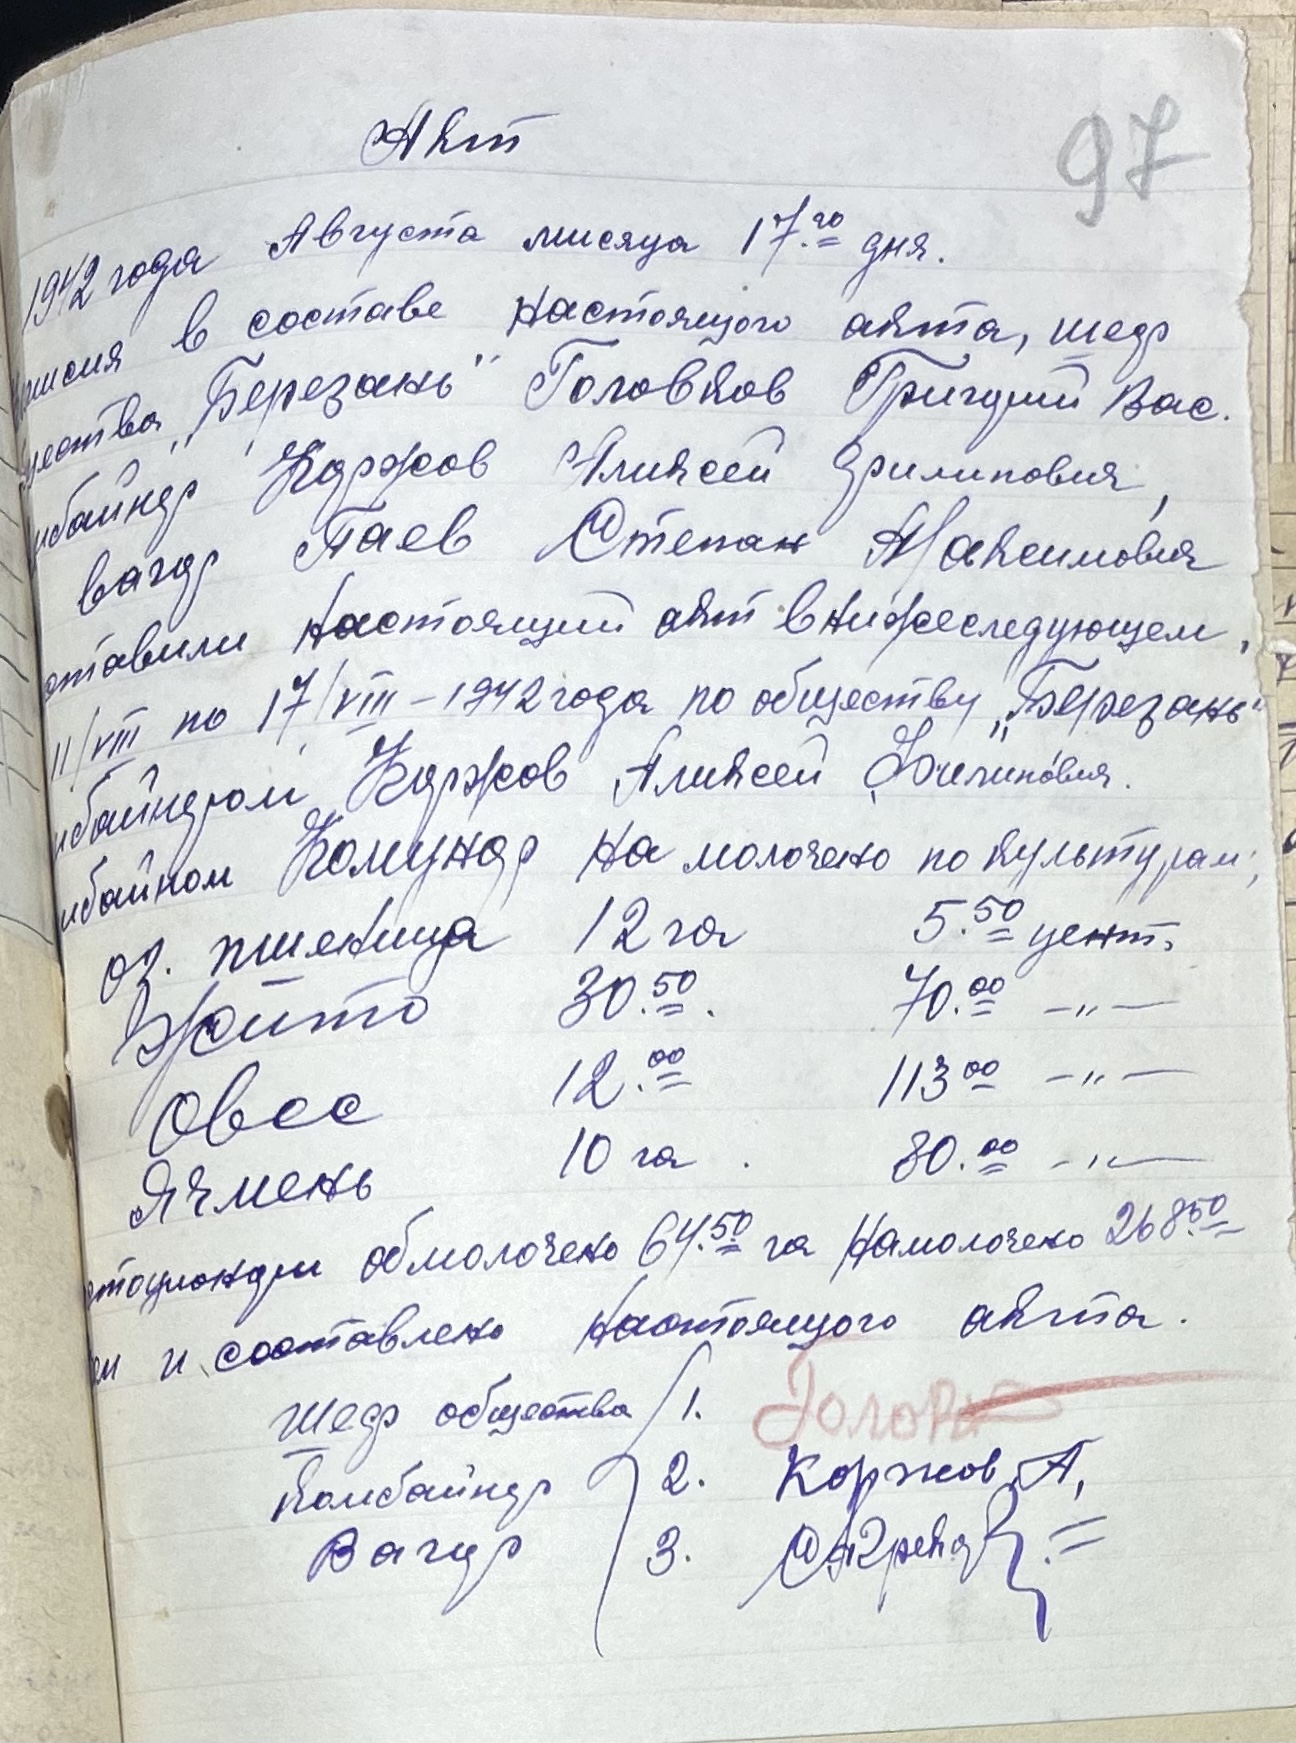 97
Акт
1942 года Августа мисяца 17.го дня.
в составе настоящого акта, шеф
"Березань" Головков Григорий Вас.
Коржов Аликсей Филипович,
вагар Таев Степан Максимович
оставили настоящий акт в нижеследующем,
11/VIII по 17/VIII – 1942 года по обществу "Березань"
Коржов Аликсей Филипович.
Комунар намолочено по культурам;
оз. пшеница 12 га 5.50 цент.
Жито 30.50. 70.00 –"–
Овес 12.00 113 00 –"–
Ячмень 10 га 80.00 –"–
обмолочено 64.50 га намолочено 268.50
и составлено настоящого акта.
Шеф общества 1. Голов
Комбайнер 2. Коржов А,
Вагар 3.